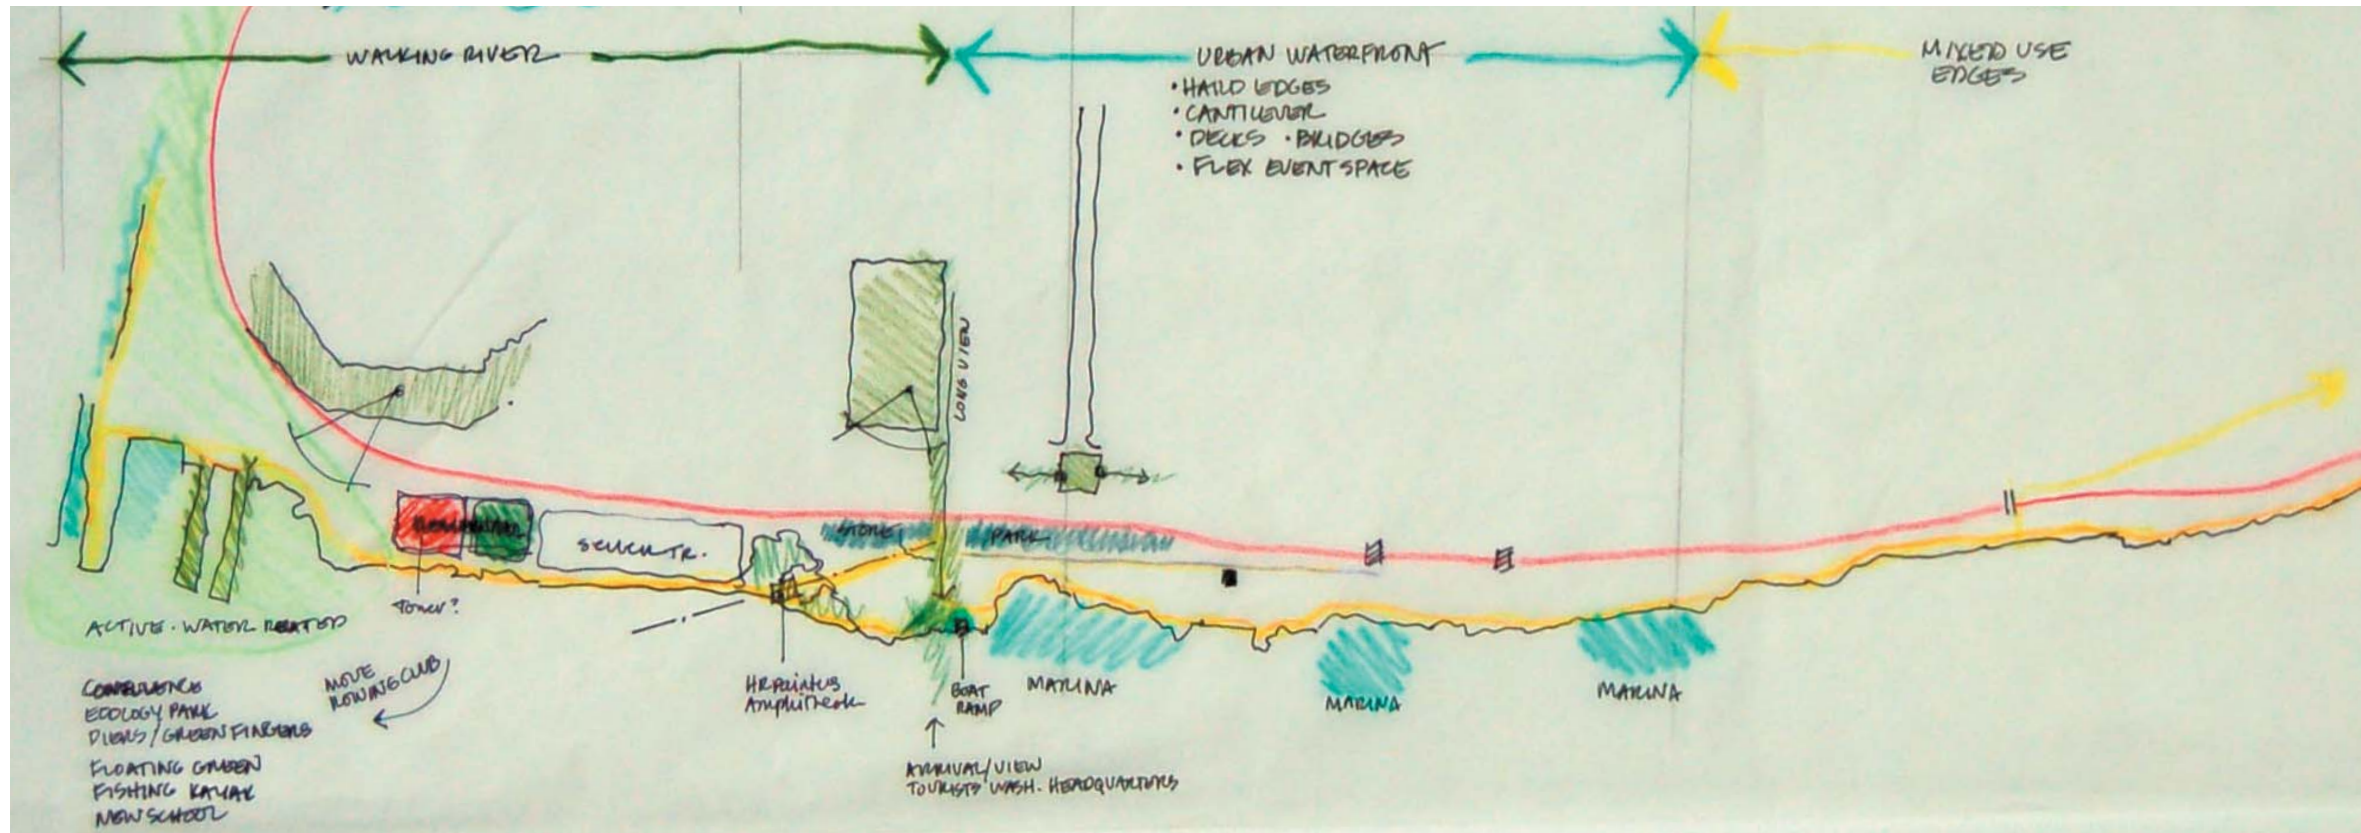 WALKING RIVER
URBAN WATERFRONT
• HARD EDGES
• CANTILEVER
• DECKS • BRIDGES
• FLEX EVENT SPACE
MIXED USE
EDGES
LONG VIEW
STONE
PARK
SEWER TR.
TOWER?
ACTIVE · WATER RELATED
CONFLUENCE
ECOLOGY PARK
PIERS / GREEN FINGERS
FLOATING GREEN
FISHING KAYAK
NEW SCHOOL
MOVE
ROWING CLUB
Amphitheater
BOAT
RAMP
MARINA
MARINA
MARINA
ARRIVAL/VIEW
TOURISTS WASH. HEADQUARTERS